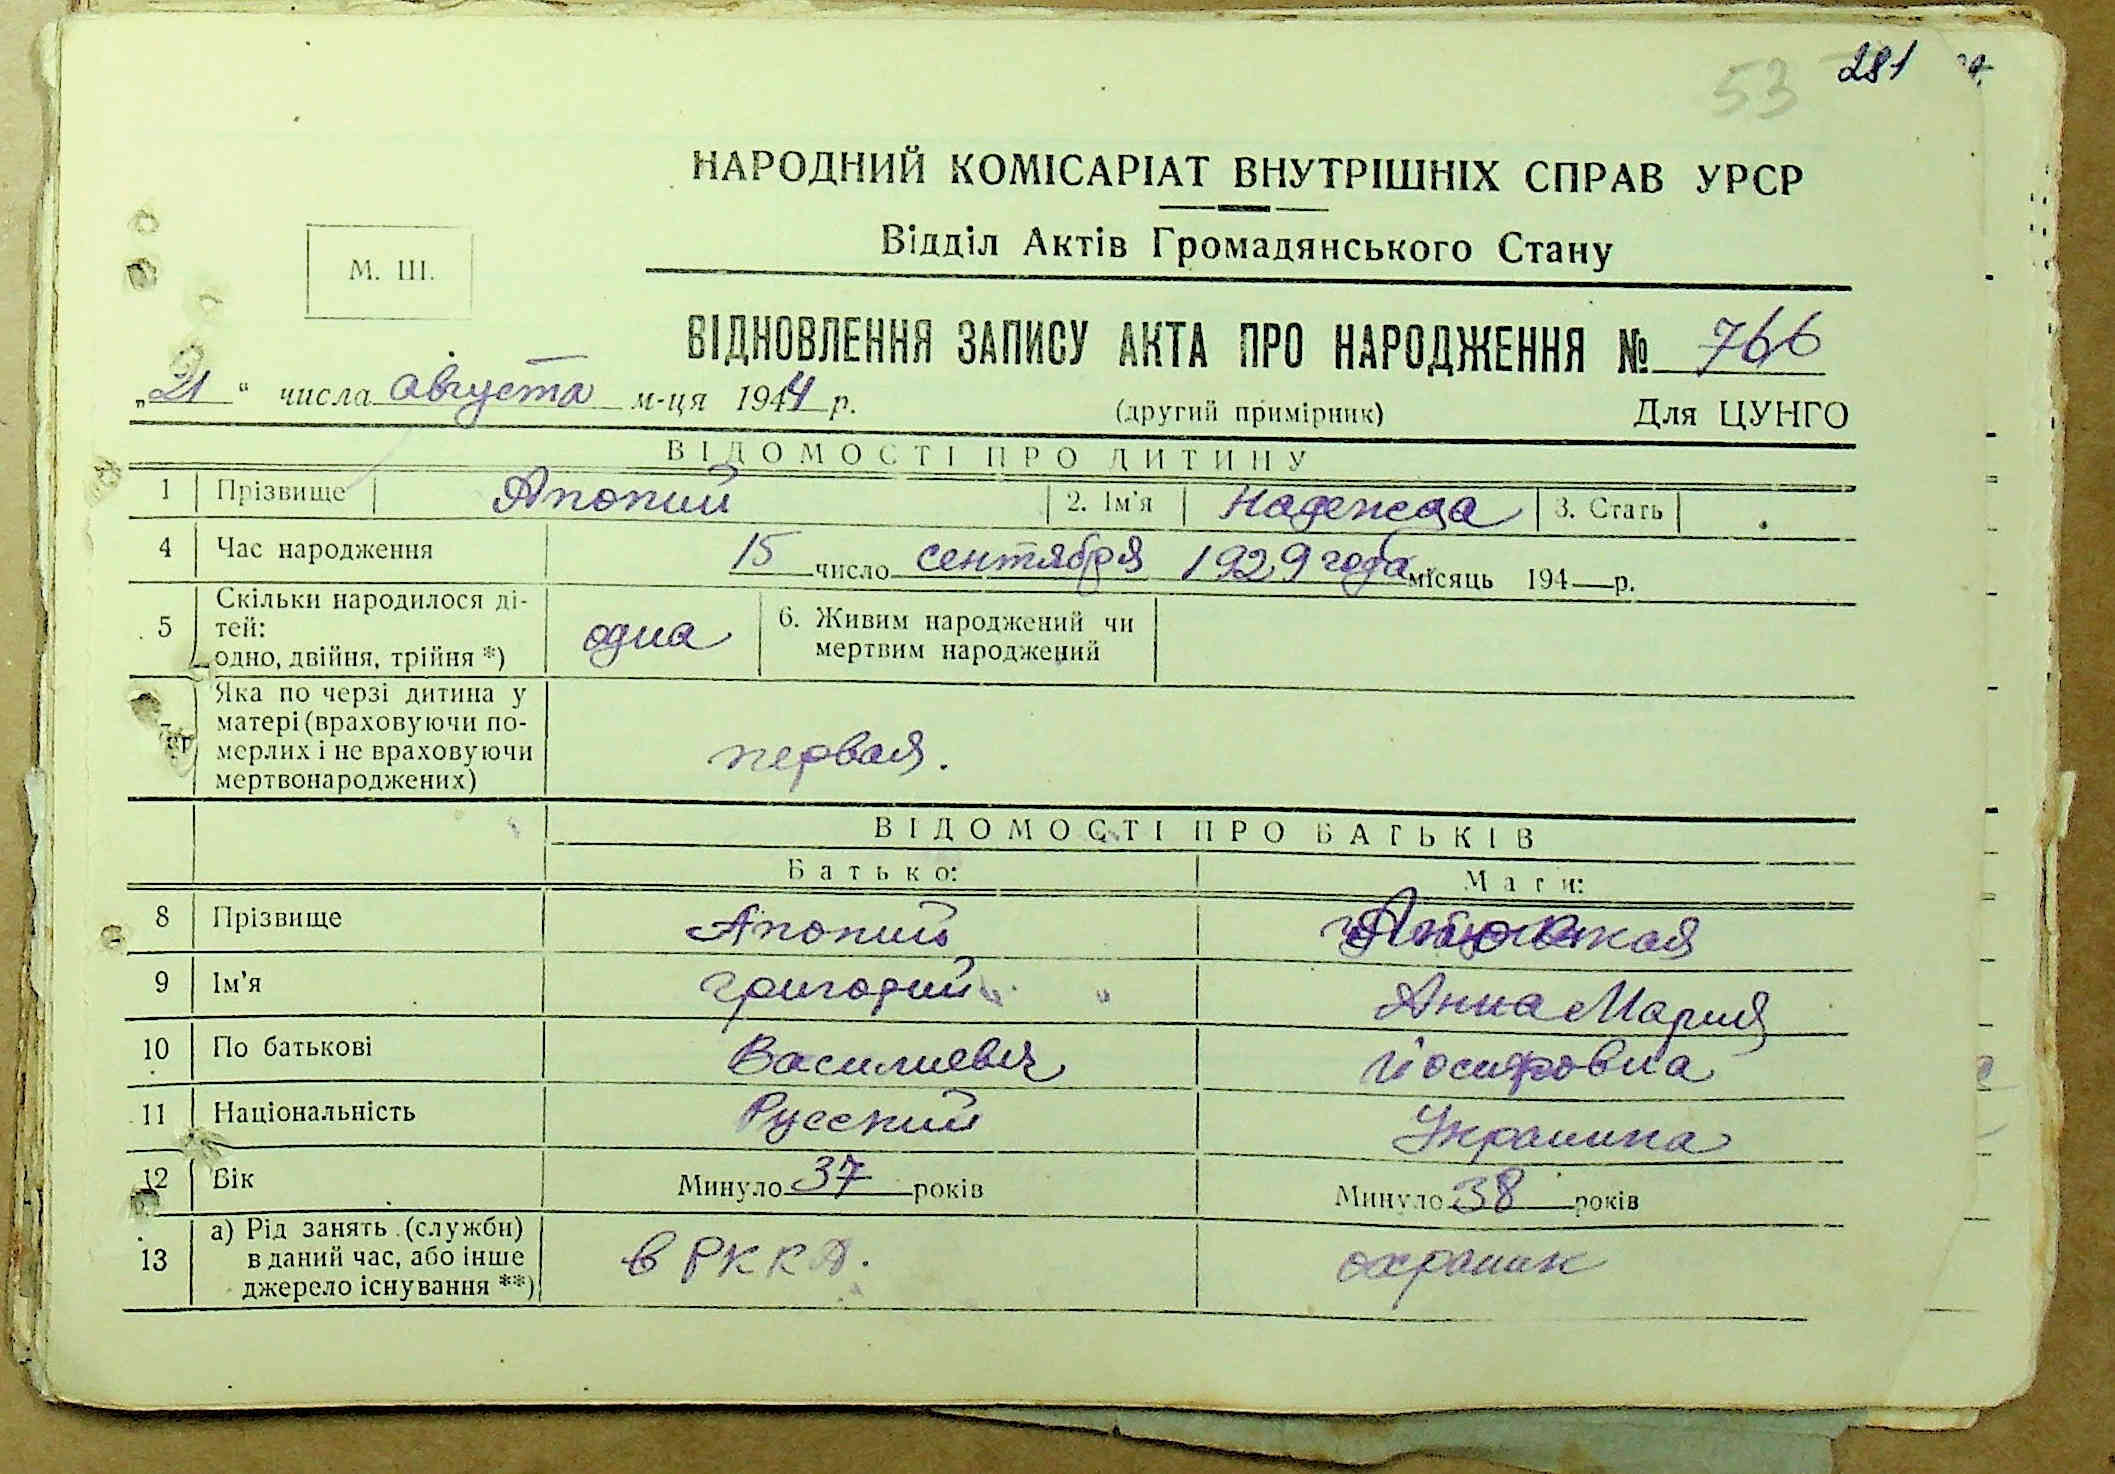 53 281
НАРОДНИЙ КОМІСАРІАТ ВНУТРІШНІХ СПРАВ УРСР
Відділ Актів Громадянського Стану
М. Ш.
ВІДНОВЛЕННЯ ЗАПИСУ АКТА ПРО НАРОДЖЕННЯ № 766
„21“ числа августа м-ця 1944 р. (другий примірник) Для ЦУНГО
ВІДОМОСТІ ПРО ДИТИНУ
1 Прізвище Апопий 2. Ім'я Надежда 3. Стать
4 Час народження 15 число сентября 1929 года місяць 194—р.
5 Скільки народилося ді-
тей:
одно, двійня, трійня *)
одна
6. Живим народжений чи
мертвим народжений
Яка по черзі дитина у
матері (враховуючи по-
мерлих і не враховуючи
мертвонароджених)
первая.
ВІДОМОСТІ ПРО БАТЬКІВ
Батько: Мати:
8 Прізвище Апопий
9 Ім'я Григорий Анна Мария
10 По батькові Василиевич Йосифовна
11 Національність Русский Украинка
12 Вік Минуло 37 років Минуло 38 років
13 а) Рід занять (служби)
в даний час, або інше
джерело існування **)
в РККА. охраник